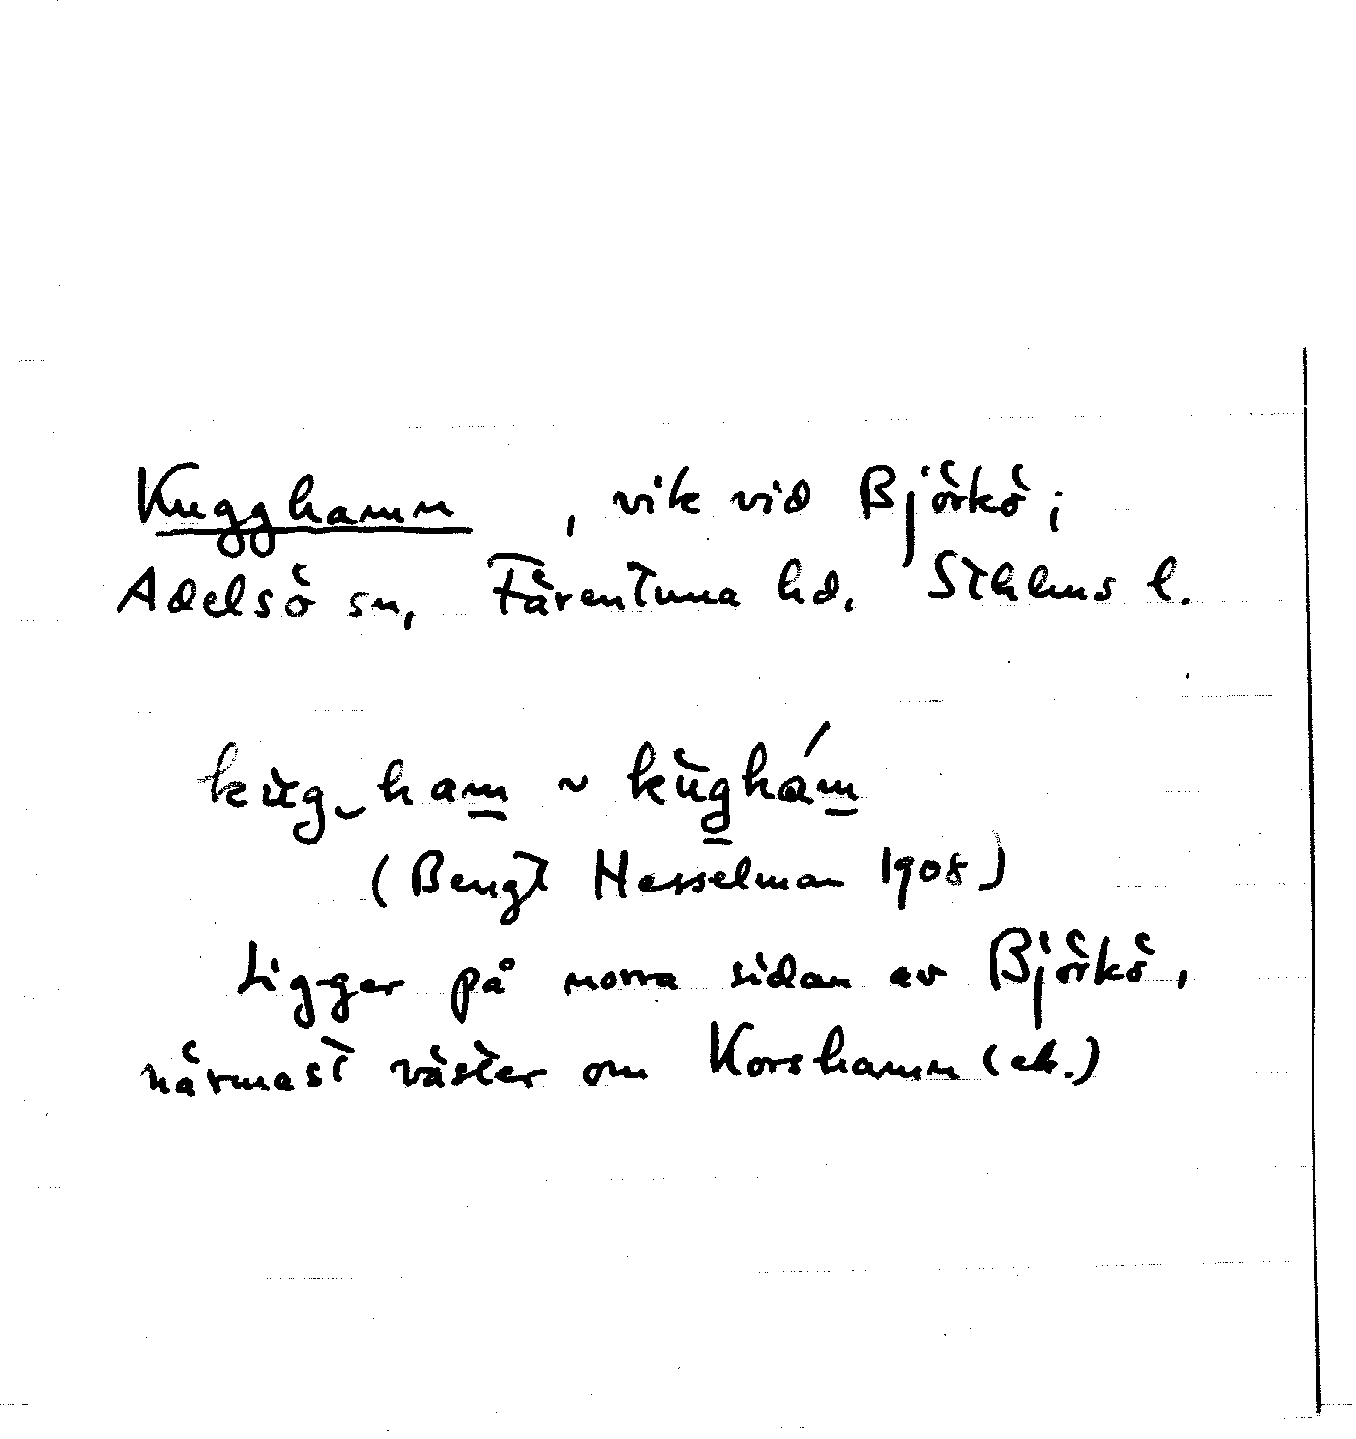 Kugghamn , vik vid Björkö i
Adelsö sn, Färentuna hd, Sthlms l.
kùg‿ham̲ ~ kùg̲hám̲
(Bengt Hesselman 1908)
Ligger på norra sidan av Björkö,
närmast väster om Korshamn